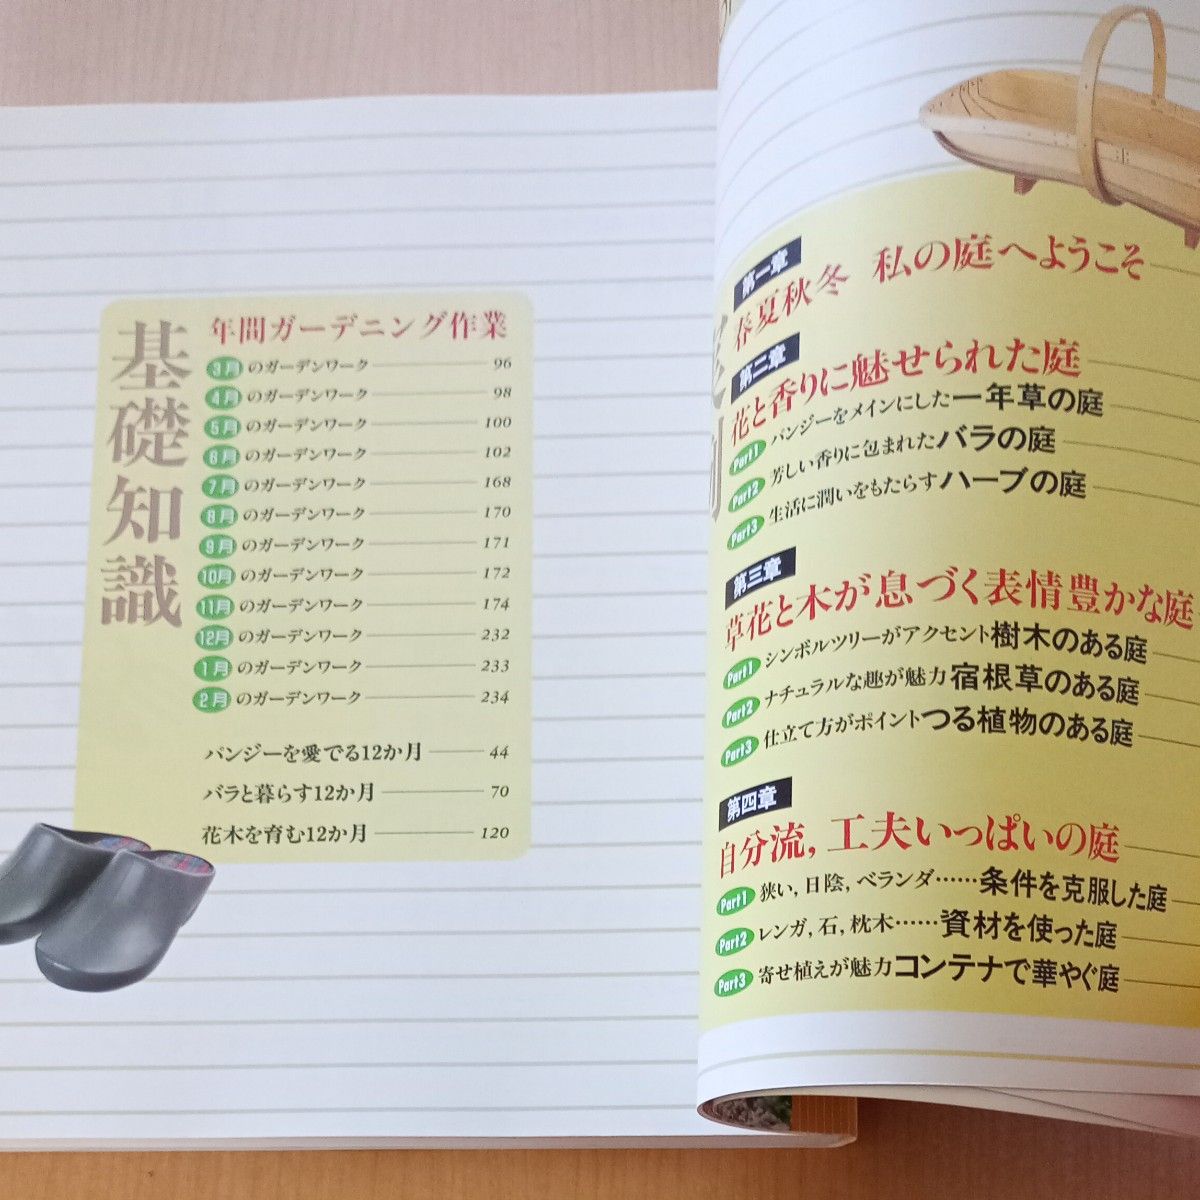 基礎知識
年間ガーデニング作業
3月のガーデンワーク 96
4月のガーデンワーク 98
5月のガーデンワーク 100
6月のガーデンワーク 102
7月のガーデンワーク 168
8月のガーデンワーク 170
9月のガーデンワーク 171
10月のガーデンワーク 172
11月のガーデンワーク 174
12月のガーデンワーク 232
1月のガーデンワーク 233
2月のガーデンワーク 234
パンジーを愛でる12か月 44
バラと暮らす12か月 70
花木を育む12か月 120
第一章
春夏秋冬 私の庭へようこそ
第二章
花と香りに魅せられた庭
Part1 パンジーをメインにした一年草の庭
Part2 芳しい香りに包まれたバラの庭
Part3 生活に潤いをもたらすハーブの庭
第三章
草花と木が息づく表情豊かな庭
Part1 シンボルツリーがアクセント樹木のある庭
Part2 ナチュラルな趣が魅力宿根草のある庭
Part3 仕立て方がポイントつる植物のある庭
第四章
自分流,工夫いっぱいの庭
Part1 狭い,日陰,ベランダ……条件を克服した庭
Part2 レンガ,石,枕木……資材を使った庭
Part3 寄せ植えが魅力コンテナで華やぐ庭